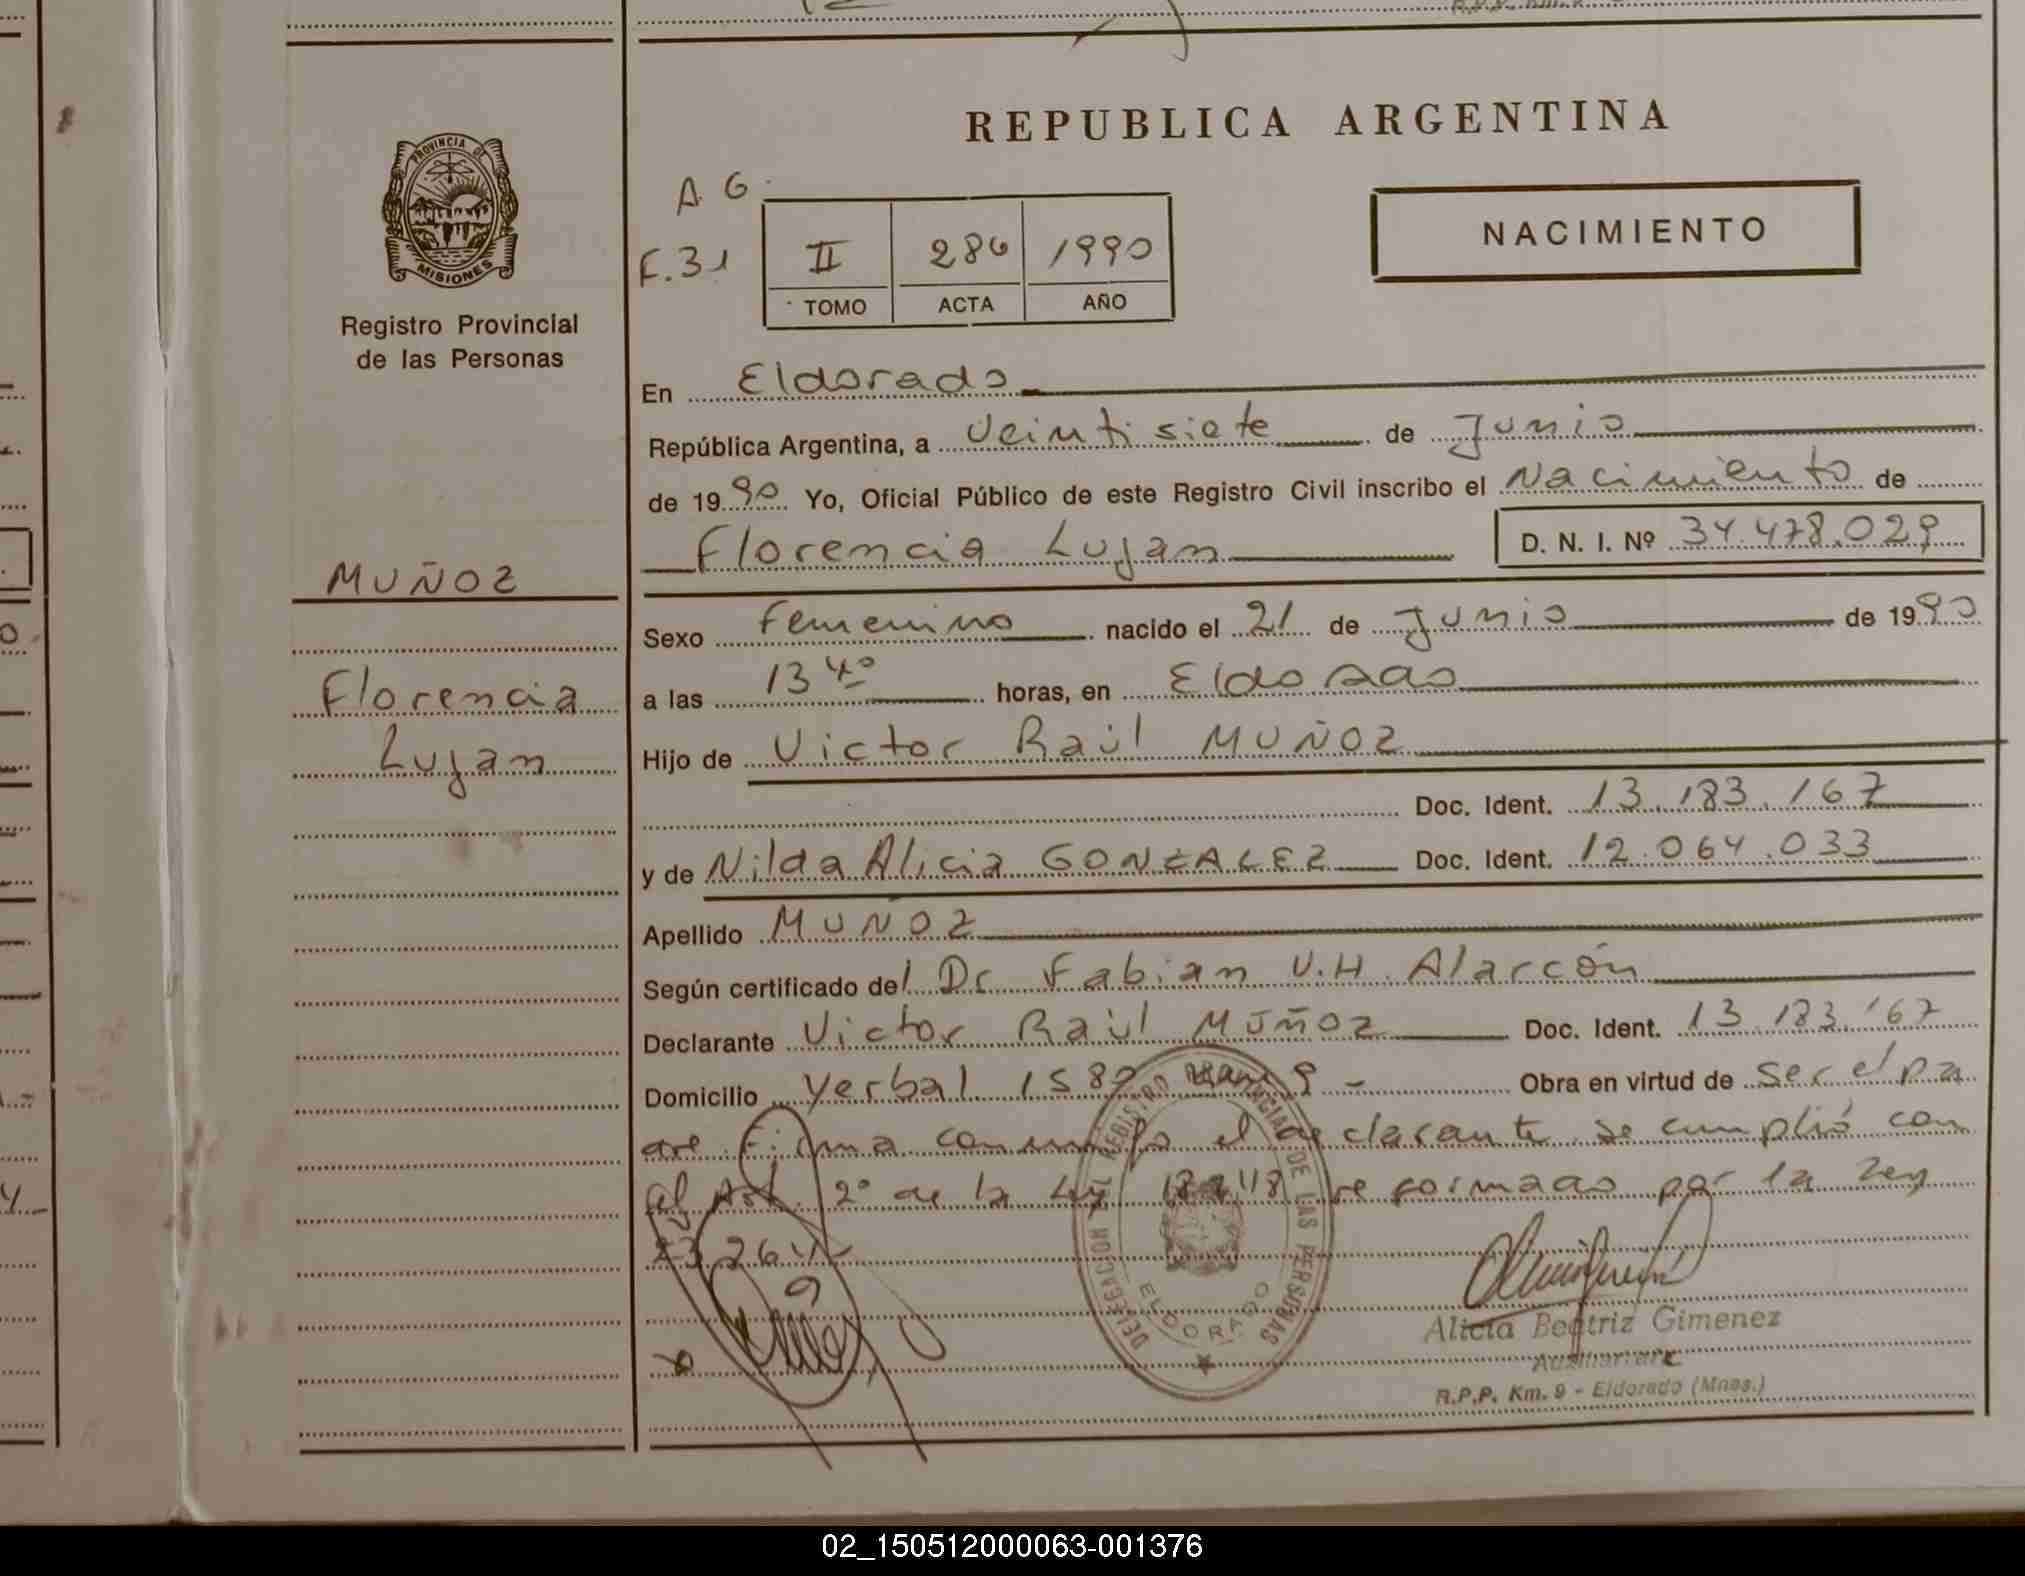 REPUBLICA ARGENTINA
PROVINCIA DE
MISIONES
Registro Provincial
de las Personas
A. G.
F. 31
II 286 1990
TOMO ACTA AÑO
NACIMIENTO
En Eldorado
República Argentina, a Veintisiete de Junio
de 1990 Yo, Oficial Público de este Registro Civil inscribo el Nacimiento de
Florencia Lujan D. N. I. Nº 34.478.029
MUÑOZ
Florencia
Lujan
Sexo Femenino nacido el 21 de Junio de 1990
a las 13 40 horas, en Eldorado
Hijo de Victor Raúl MUÑOZ
Doc. Ident. 13.183.167
y de Nilda Alicia GONZALEZ Doc. Ident. 12.064.033
Apellido MUÑOZ
Según certificado del Dr Fabian V.H. Alarcón
Declarante Victor Raúl MUÑOZ Doc. Ident. 13.183.167
Domicilio Yerbal 1580 9 - Obra en virtud de ser el pa
dre. Firma conmigo el declarante. Se cumplió con
el Art. 2º de la Ley 18248 reformado por la Ley
23.264.-
DELEGACION DEL REGISTRO PROVINCIAL DE LAS PERSONAS
ELDORADO
Alicia Beatriz Gimenez
R.P.P. Km. 9 - Eldorado (Mnes.)
02_150512000063-001376